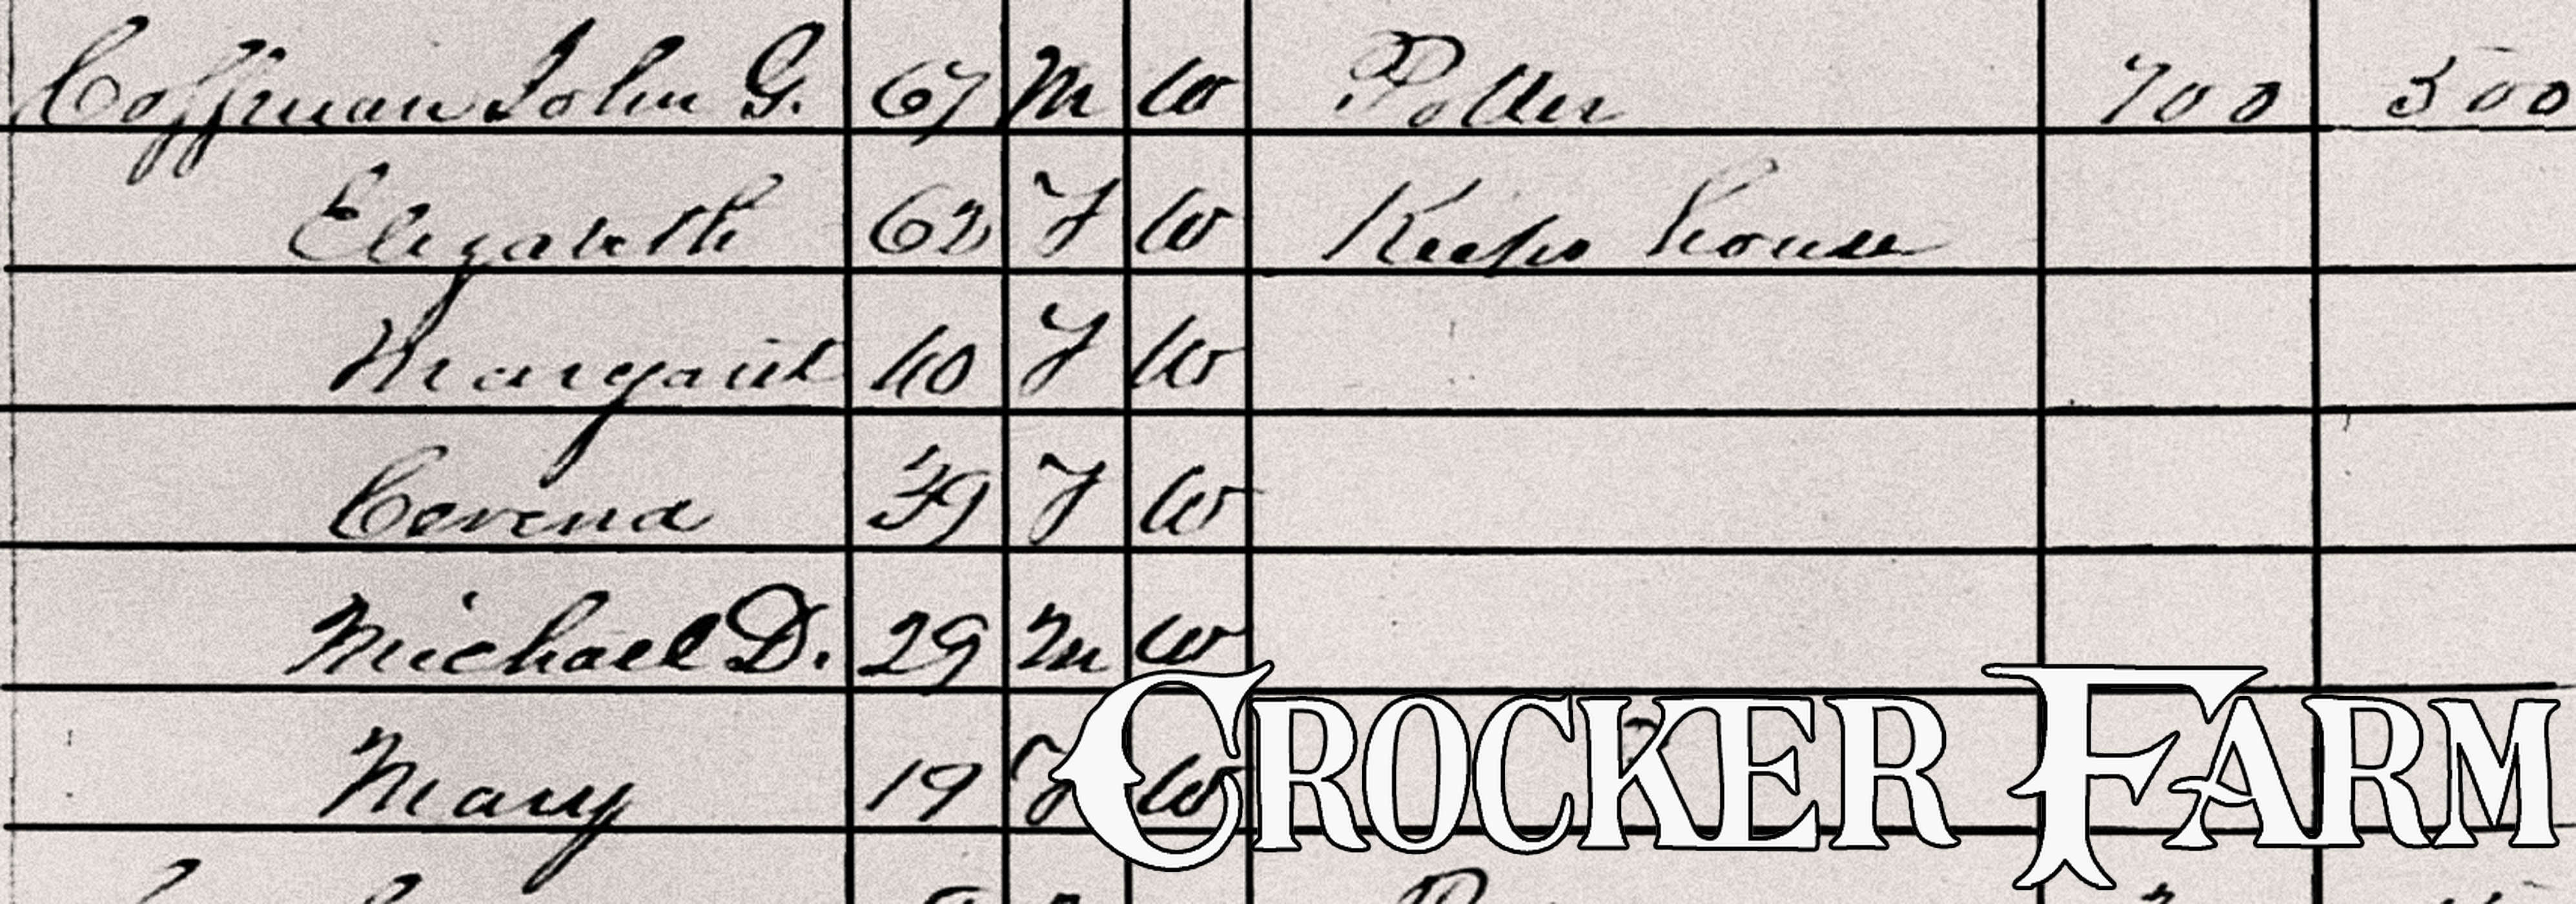 Coffman John G. 67 M W Potter 700 500
Elizabeth 62 F W Keeps house
Margaret 40 F W
39 F W
Michael D. 29 M W
Mary 19 F W
CROCKER FARM